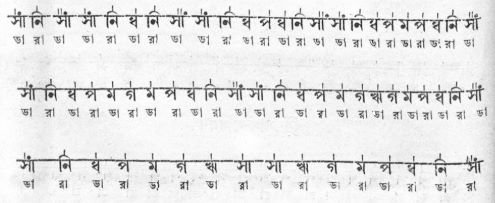 সাঁ নি সাঁ সাঁ নি ধ নি সাঁ সাঁ নি ধ প ধ নি সাঁ সাঁ নি ধ প ম প ধ নি সাঁ
ডা রা ডা ডা রা ডা রা ডা ডা রা ডা রা ডা রা ডা ডা রা ডা রা ডা রা ডা রা ডা
সাঁ নি ধ প ম গ ম প ধ নি সাঁ সাঁ নি ধ প ম গ ঋ গ ম প ধ নি সাঁ
ডা রা ডা রা ডা রা ডা রা ডা রা ডা ডা রা ডা রা ডা রা ডা রা ডা রা ডা রা ডা
সাঁ নি ধ প ম গ ঋ সা সা ঋ গ ম প ধ নি সাঁ
ডা রা ডা রা ডা রা ডা রা ডা রা ডা রা ডা রা ডা রা